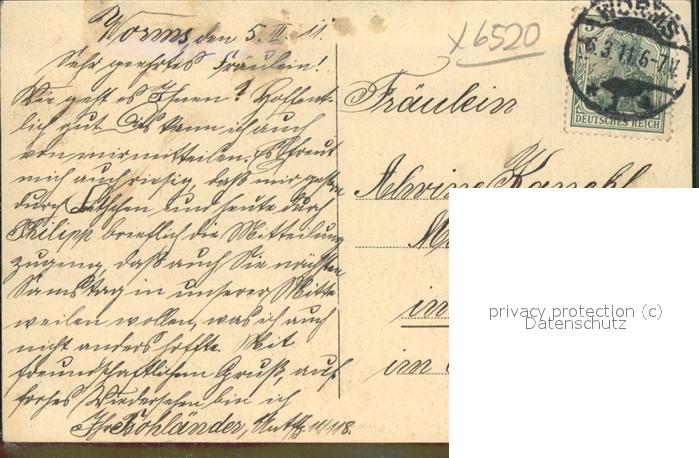 Worms, den 5. III. 11.
Sehr geehrtes Fräulein!
Wie geht es Ihnen? Hoffent-
lich gut. Das kann ich auch
von mir mitteilen. Es freut
mich auch riesig, daß mir gestern
durch und heute durch
Philipp brieflich die Mitteilung
zuging, daß auch Sie nächsten
Samstag in unserer Mitte
weilen wollen, was ich auch
nicht anders hoffte. Mit
freundschaftlichem Gruß, auf
frohes Wiedersehen bin ich
Ihr 11/118.
X 6520
WORMS
6.3.11.6-7V.
* 1 a
DEUTSCHES REICH
Fräulein
in
im
privacy protection (c)
Datenschutz